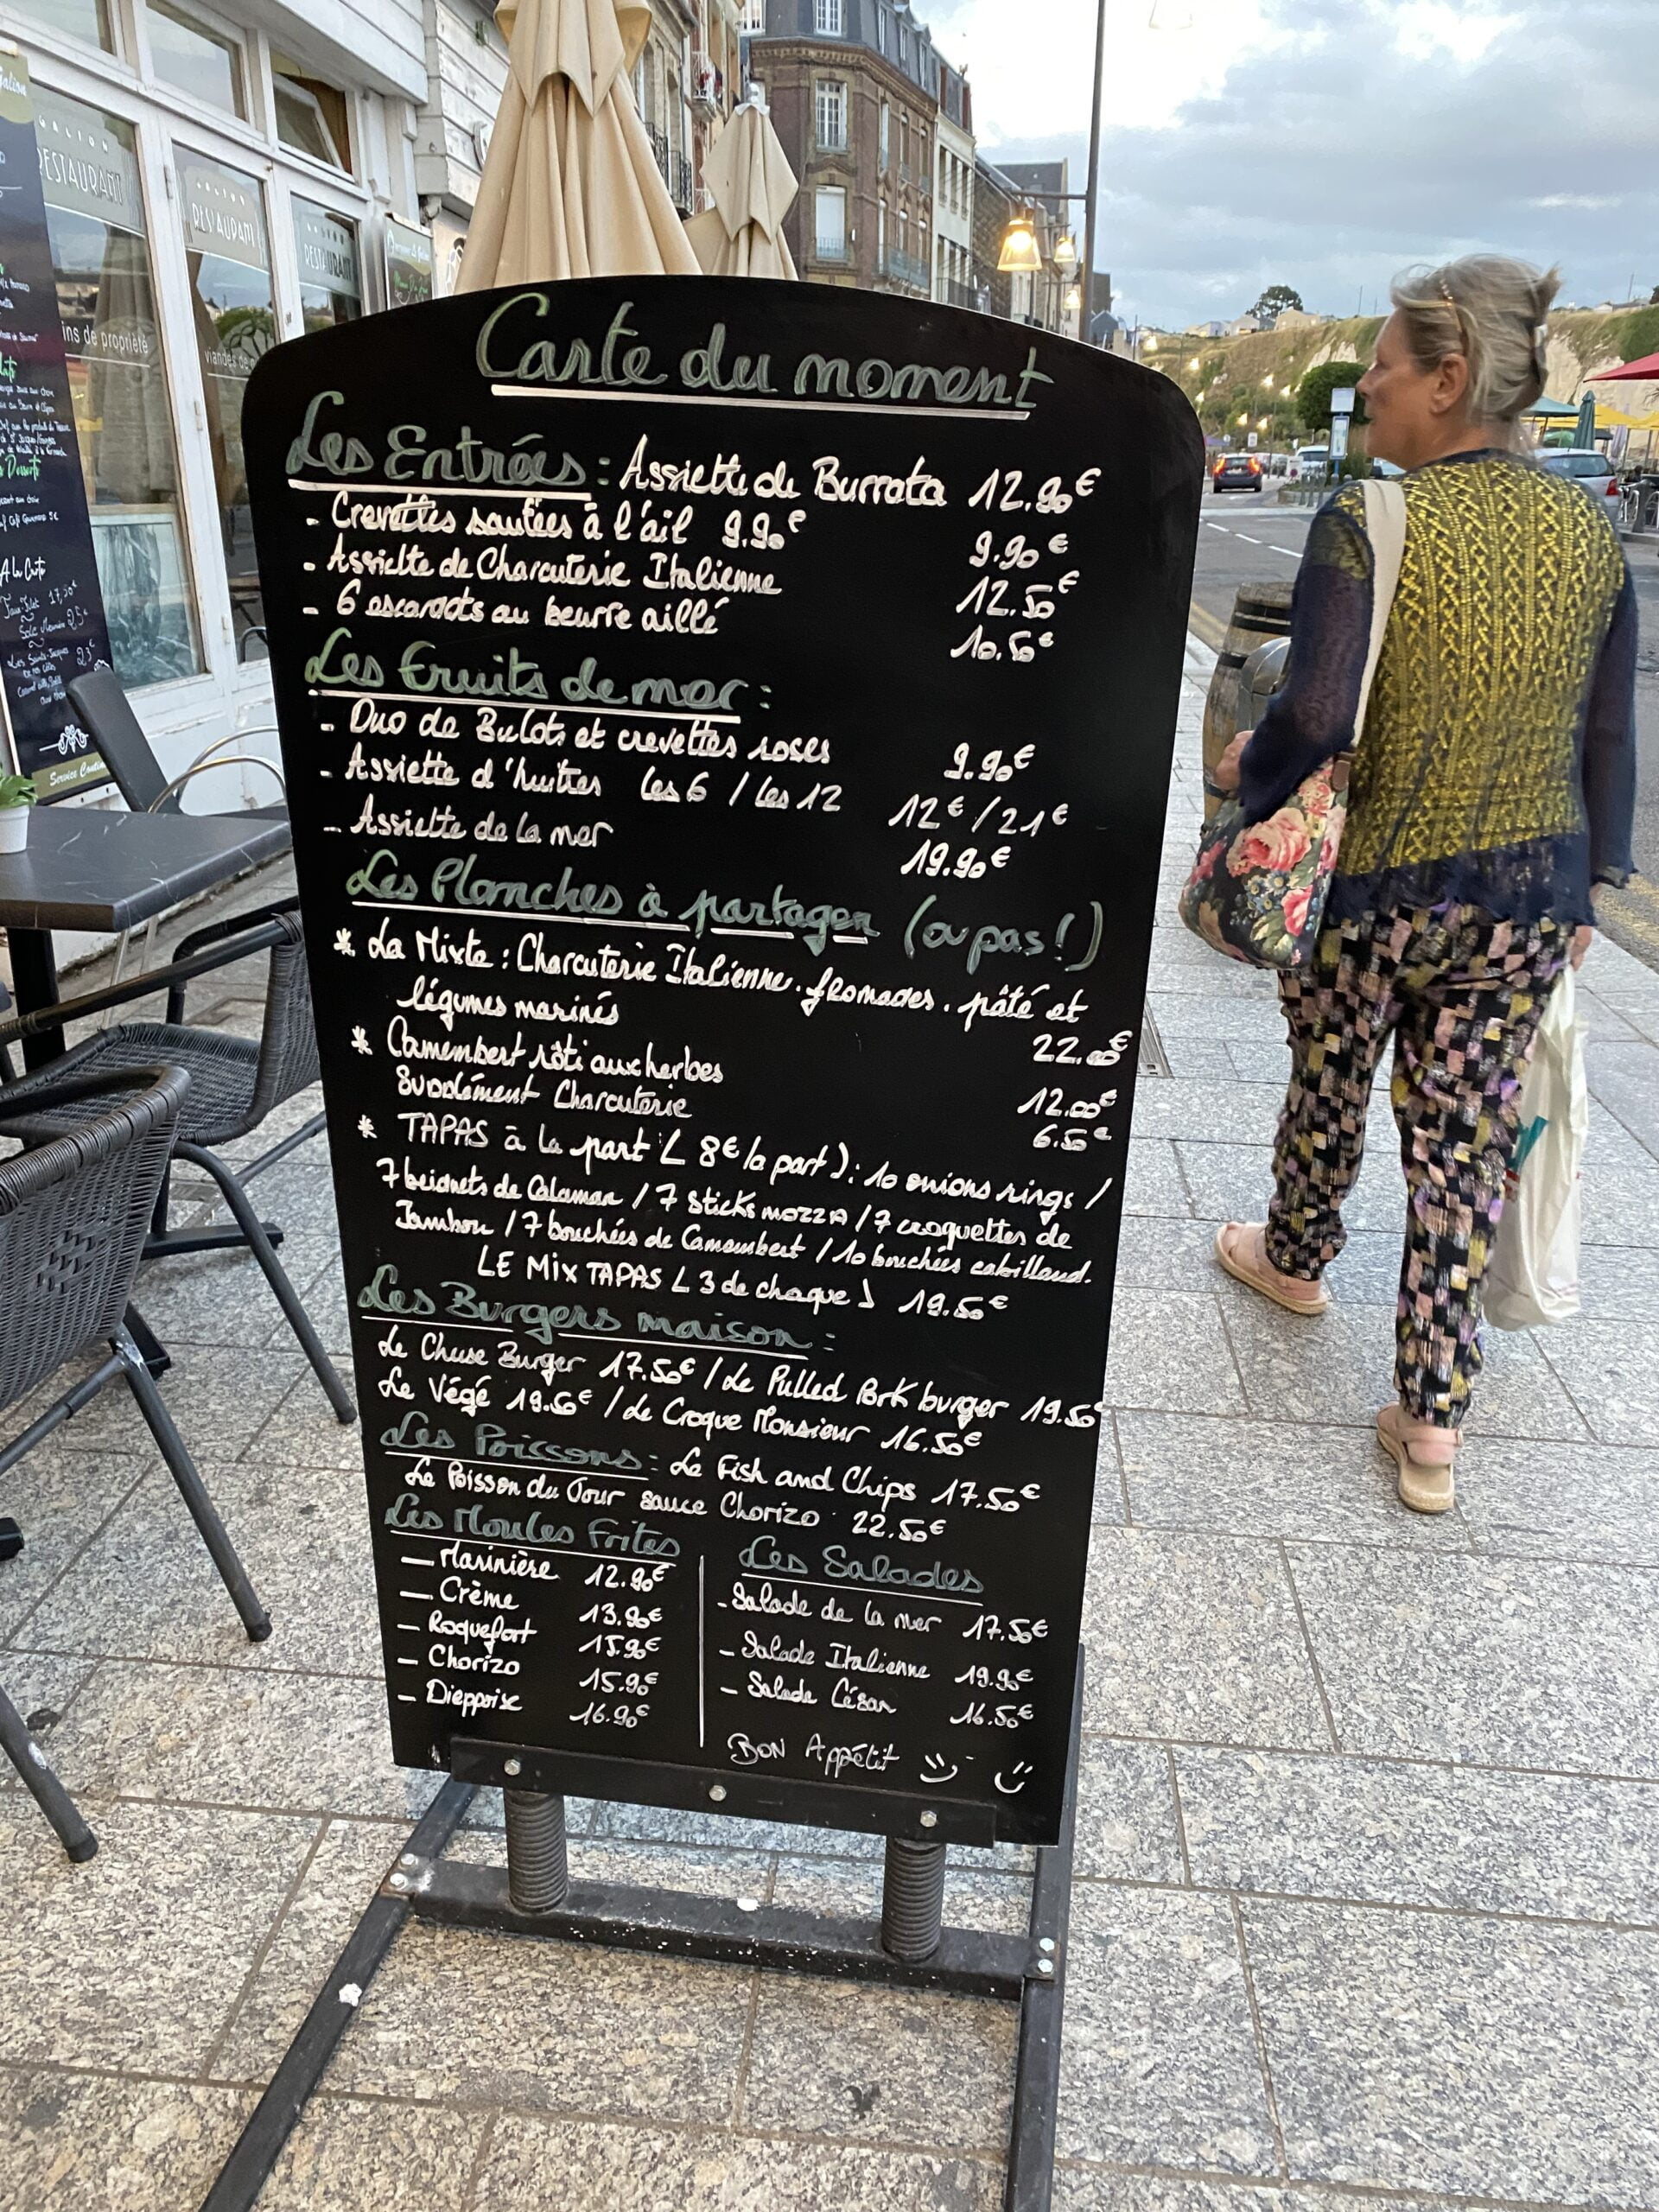 GALION
RESTAURANT
GALION
RESTAURANT
RESTAURANT
ins de propriété
viandes de
Desserts
A la Carte
Service Contin
Carte du moment
Les Entrées : Assiette de Burrata 12.90€
- Crevettes sautées à l'ail 9.90€ 9.90€
- Assiette de Charcuterie Italienne 12.50€
- 6 escargots au beurre aillé 10.50€
Les Fruits de mer :
- Duo de Bulots et crevettes roses 9.90€
- Assiette d'huitres les 6 / les 12 12€/21€
- Assiette de la mer 19.90€
Les Planches à partager (ou pas!)
* La Mixte : Charcuterie Italienne. fromages. pâté et
légumes marinés 22.00€
* Camembert rôti aux herbes 12.00€
Supplément Charcuterie 6.50€
* TAPAS à la part ( 8€ la part ) : 10 onions rings /
7 beignets de Calamar / 7 sticks mozza / 7 croquettes de
Jambon / 7 bouchées de Camembert / 10 bouchées cabillaud.
LE MIX TAPAS ( 3 de chaque ) 19.50€
Les Burgers maison :
Le Cheese Burger 17.50€ / Le Pulled Pork burger 19.50€
Le Végé 19.50€ / Le Croque Monsieur 16.50€
Les Poissons : Le Fish and Chips 17.50€
Le Poisson du Jour sauce Chorizo 22.50€
Les Moules Frites
— Marinière 12.90€
— Crème 13.90€
— Roquefort 15.90€
— Chorizo 15.90€
— Dieppoise 16.90€
Les Salades
- Salade de la mer 17.50€
- Salade Italienne 19.90€
- Salade César 16.50€
BON Appétit